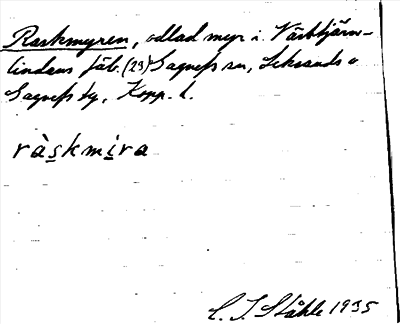 Raskmyren, odlad myr i Västbjörn-
lindans fäb. (23) Sagnefs sn, Leksands o
Gagnefs tg, Kopp. l.
ràskmira
C. I. Ståhle 1935